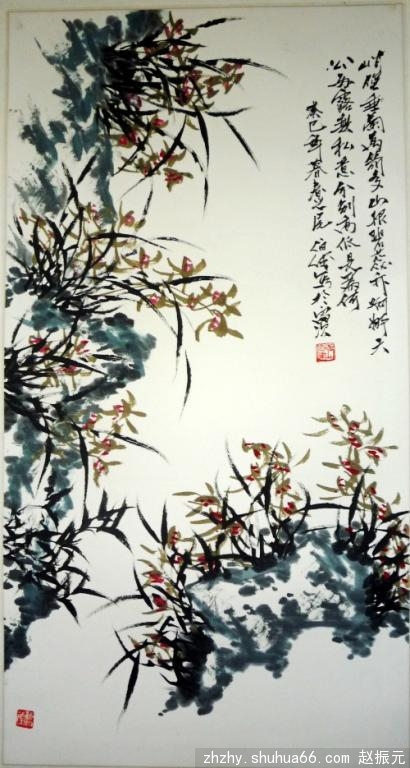 峭壁垂蘭萬箭多山根碧蕊亦婀娜天
公雨露無私意分別高低為何
癸巳年暮春
zhzhy.shuhua66.com 赵振元